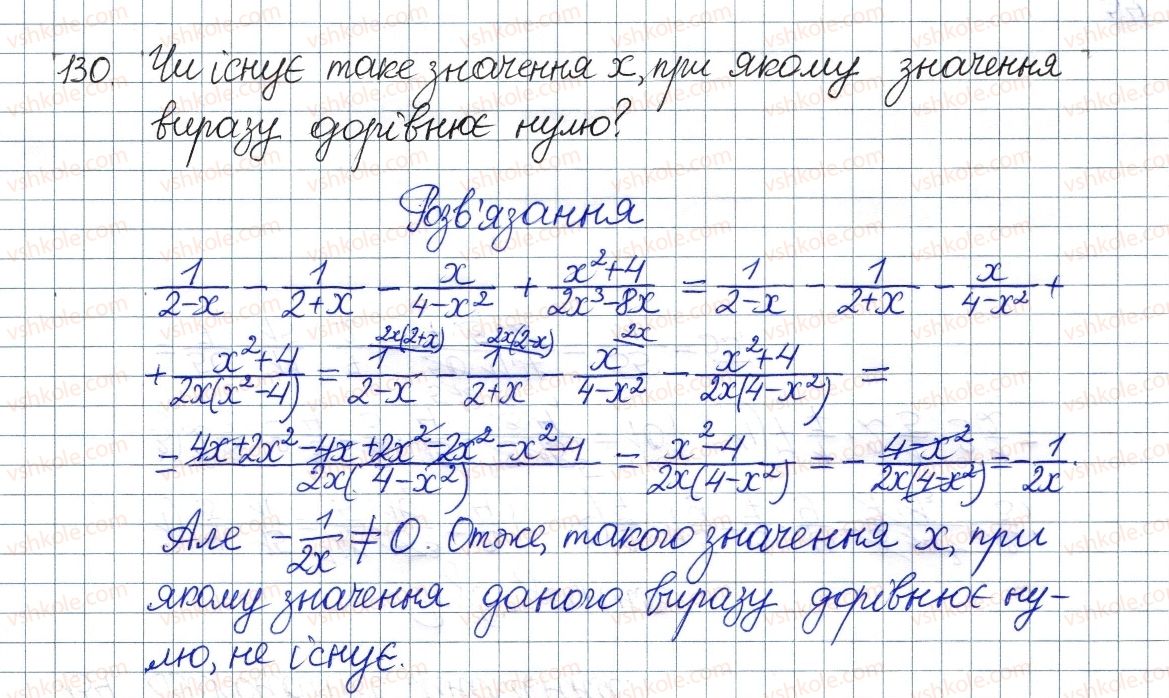 130. Чи існує таке значення x, при якому значення
виразу дорівнює нулю?
Розв'язання
1/(2-x) - 1/(2+x) - x/(4-x²) + (x²+4)/(2x³-8x) = 1/(2-x) - 1/(2+x) - x/(4-x²) +
+ (x²+4)/(2x(x²-4)) = 1/(2-x) 2x(2+x) - 1/(2+x) 2x(2-x) - x/(4-x²) 2x - (x²+4)/(2x(4-x²)) =
= (4x+2x²-4x+2x²-2x²-x²-4)/(2x(4-x²)) = (x²-4)/(2x(4-x²)) = -(4-x²)/(2x(4-x²)) = -1/2x.
Але -1/2x ≠ 0. Отже, такого значення x, при
якому значення даного виразу дорівнює ну-
лю, не існує.